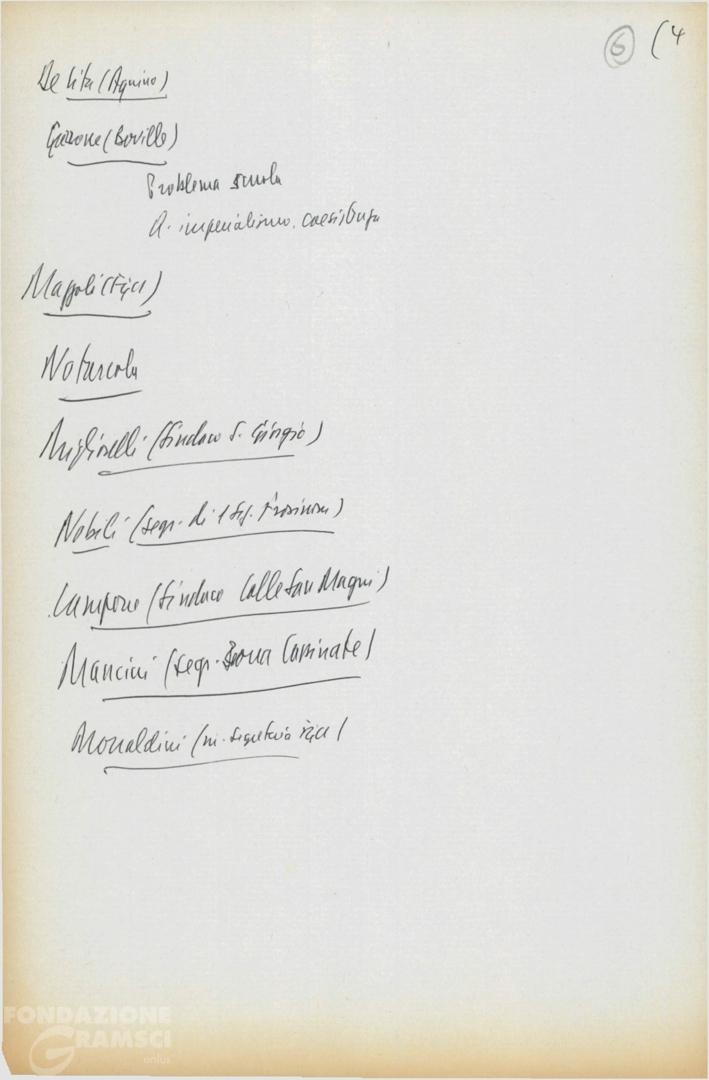 6 (4
De Vita (Aquino)
(Boville)
Problema scuola
A. imperialismo. coesistenza
(FGCI)
Notarcola
Migliorelli (Sindaco S. Giorgio)
Nobili (segr. di Frosinone)
Campone (Sindaco Colle San Magni)
Mancini (segr. Zona Cassinate)
Monaldini (segretario FGCI)
FONDAZIONE
GRAMSCI
onlus